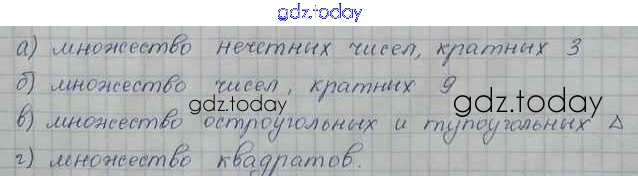 gdz.today
а) множество нечетных чисел, кратных 3
б) множество чисел, кратных 9
gdz.today
gdz.today
в) множество остроугольных и тупоугольных △
г) множество квадратов.